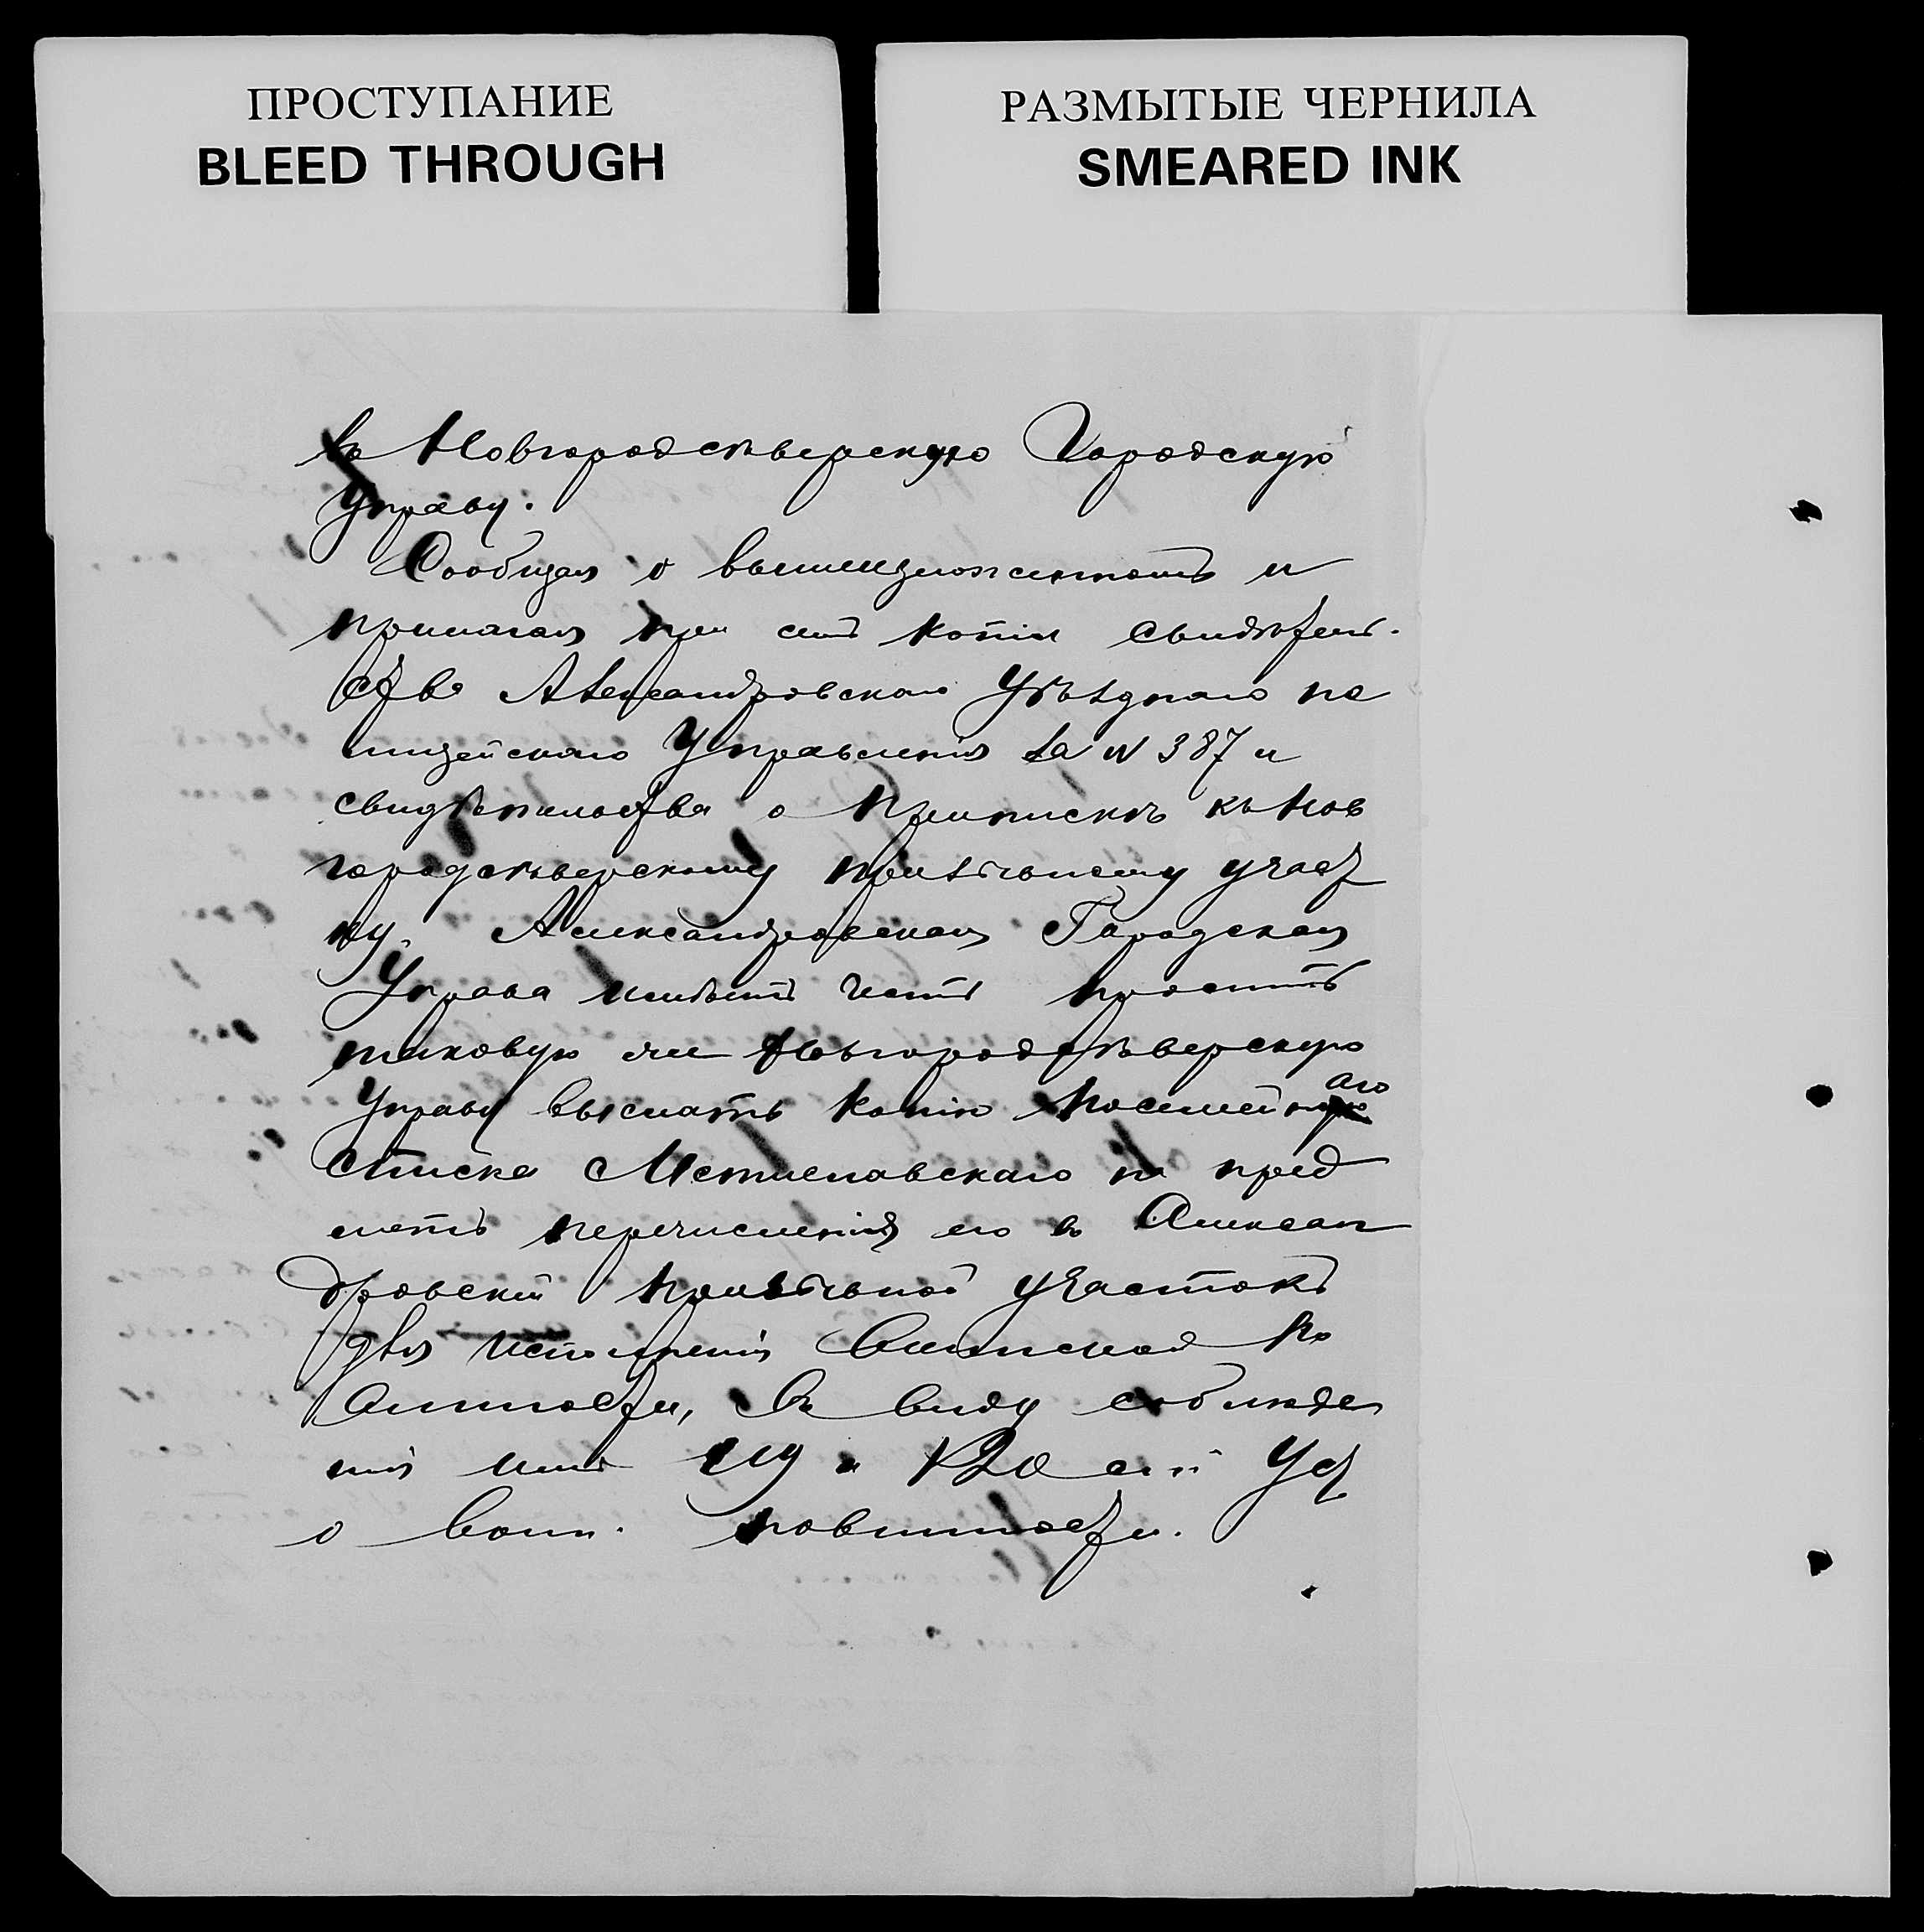 ПРОСТУПАНИЕ
BLEED THROUGH
РАЗМЫТЫЕ ЧЕРНИЛА
SMEARED INK
въ Новгородсѣверскую Городскую
Управу.
Сообщая о вышеизложенномъ и
прилагая при семъ копіи свидѣтель-
ства Александровскаго Уѣзднаго по
лицейскаго Управленія за N 387 и
свидѣтельства о припискѣ къ Нов
городсѣверскому призывному участ
ку, Александровская Городская
Управа имѣетъ честь проситъ
таковую же Новгородсѣверскую
Управу выслать копію посемейнаго
списка Мстиславскаго на пред
метъ перечисленія его въ Алексан
дровскій призывной участокъ
для исполненія воинской по
винности, въ виду соблюде
нія имъ 119 и 120 ст. Уст
о воин. повинности.